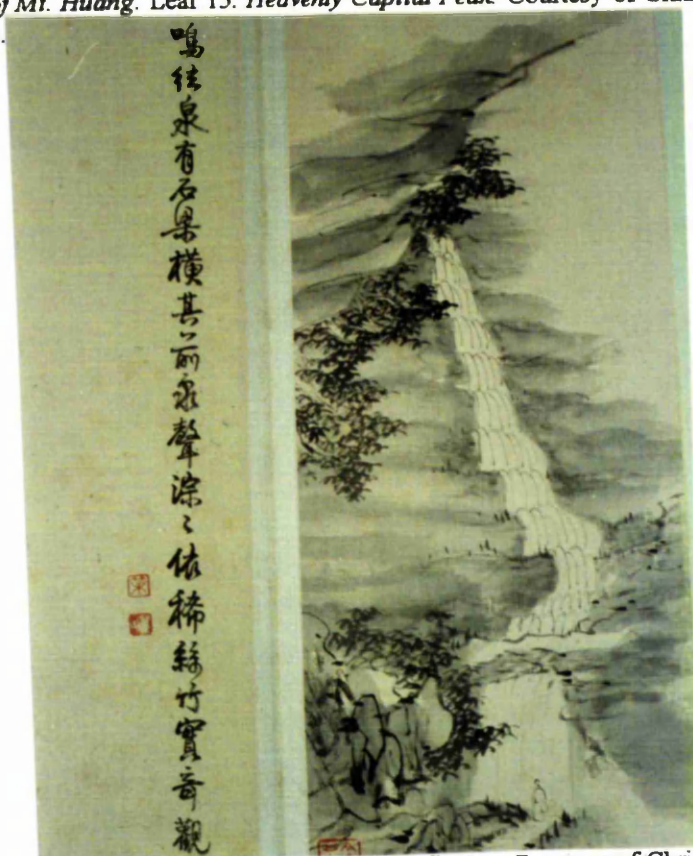 of Mt. Huang. Leaf 15. Heavenly Capital Peak. Courtesy of
鳴絃泉有石梁橫其前泉聲淙〻依稀絲竹實奇觀